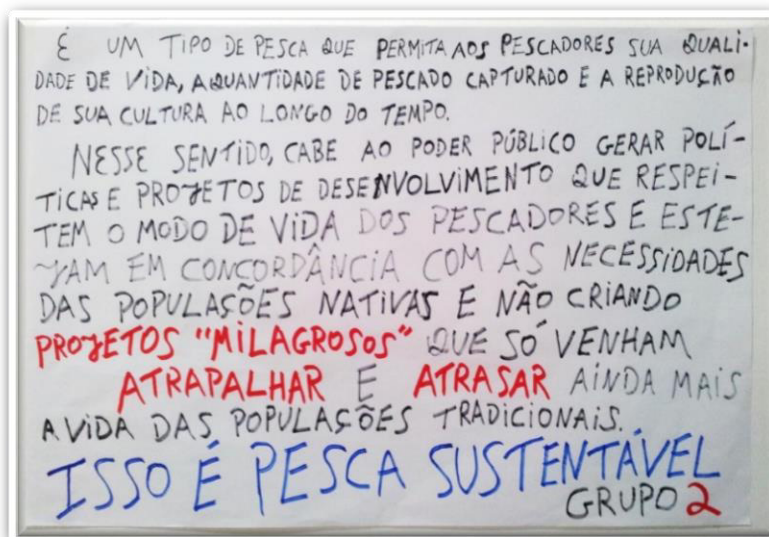 É UM TIPO DE PESCA QUE PERMITA AOS PESCADORES SUA QUALI-
DADE DE VIDA, A QUANTIDADE DE PESCADO CAPTURADO E A REPRODUÇÃO
DE SUA CULTURA AO LONGO DO TEMPO.
NESSE SENTIDO, CABE AO PODER PÚBLICO GERAR POLÍ-
TICAS E PROJETOS DE DESENVOLVIMENTO QUE RESPEI-
TEM O MODO DE VIDA DOS PESCADORES E ESTE-
JAM EM CONCORDÂNCIA COM AS NECESSIDADES
DAS POPULAÇÕES NATIVAS E NÃO CRIANDO
PROJETOS "MILAGROSOS" QUE SÓ VENHAM
ATRAPALHAR E ATRASAR AINDA MAIS
A VIDA DAS POPULAÇÕES TRADICIONAIS.
ISSO É PESCA SUSTENTÁVEL
GRUPO 2